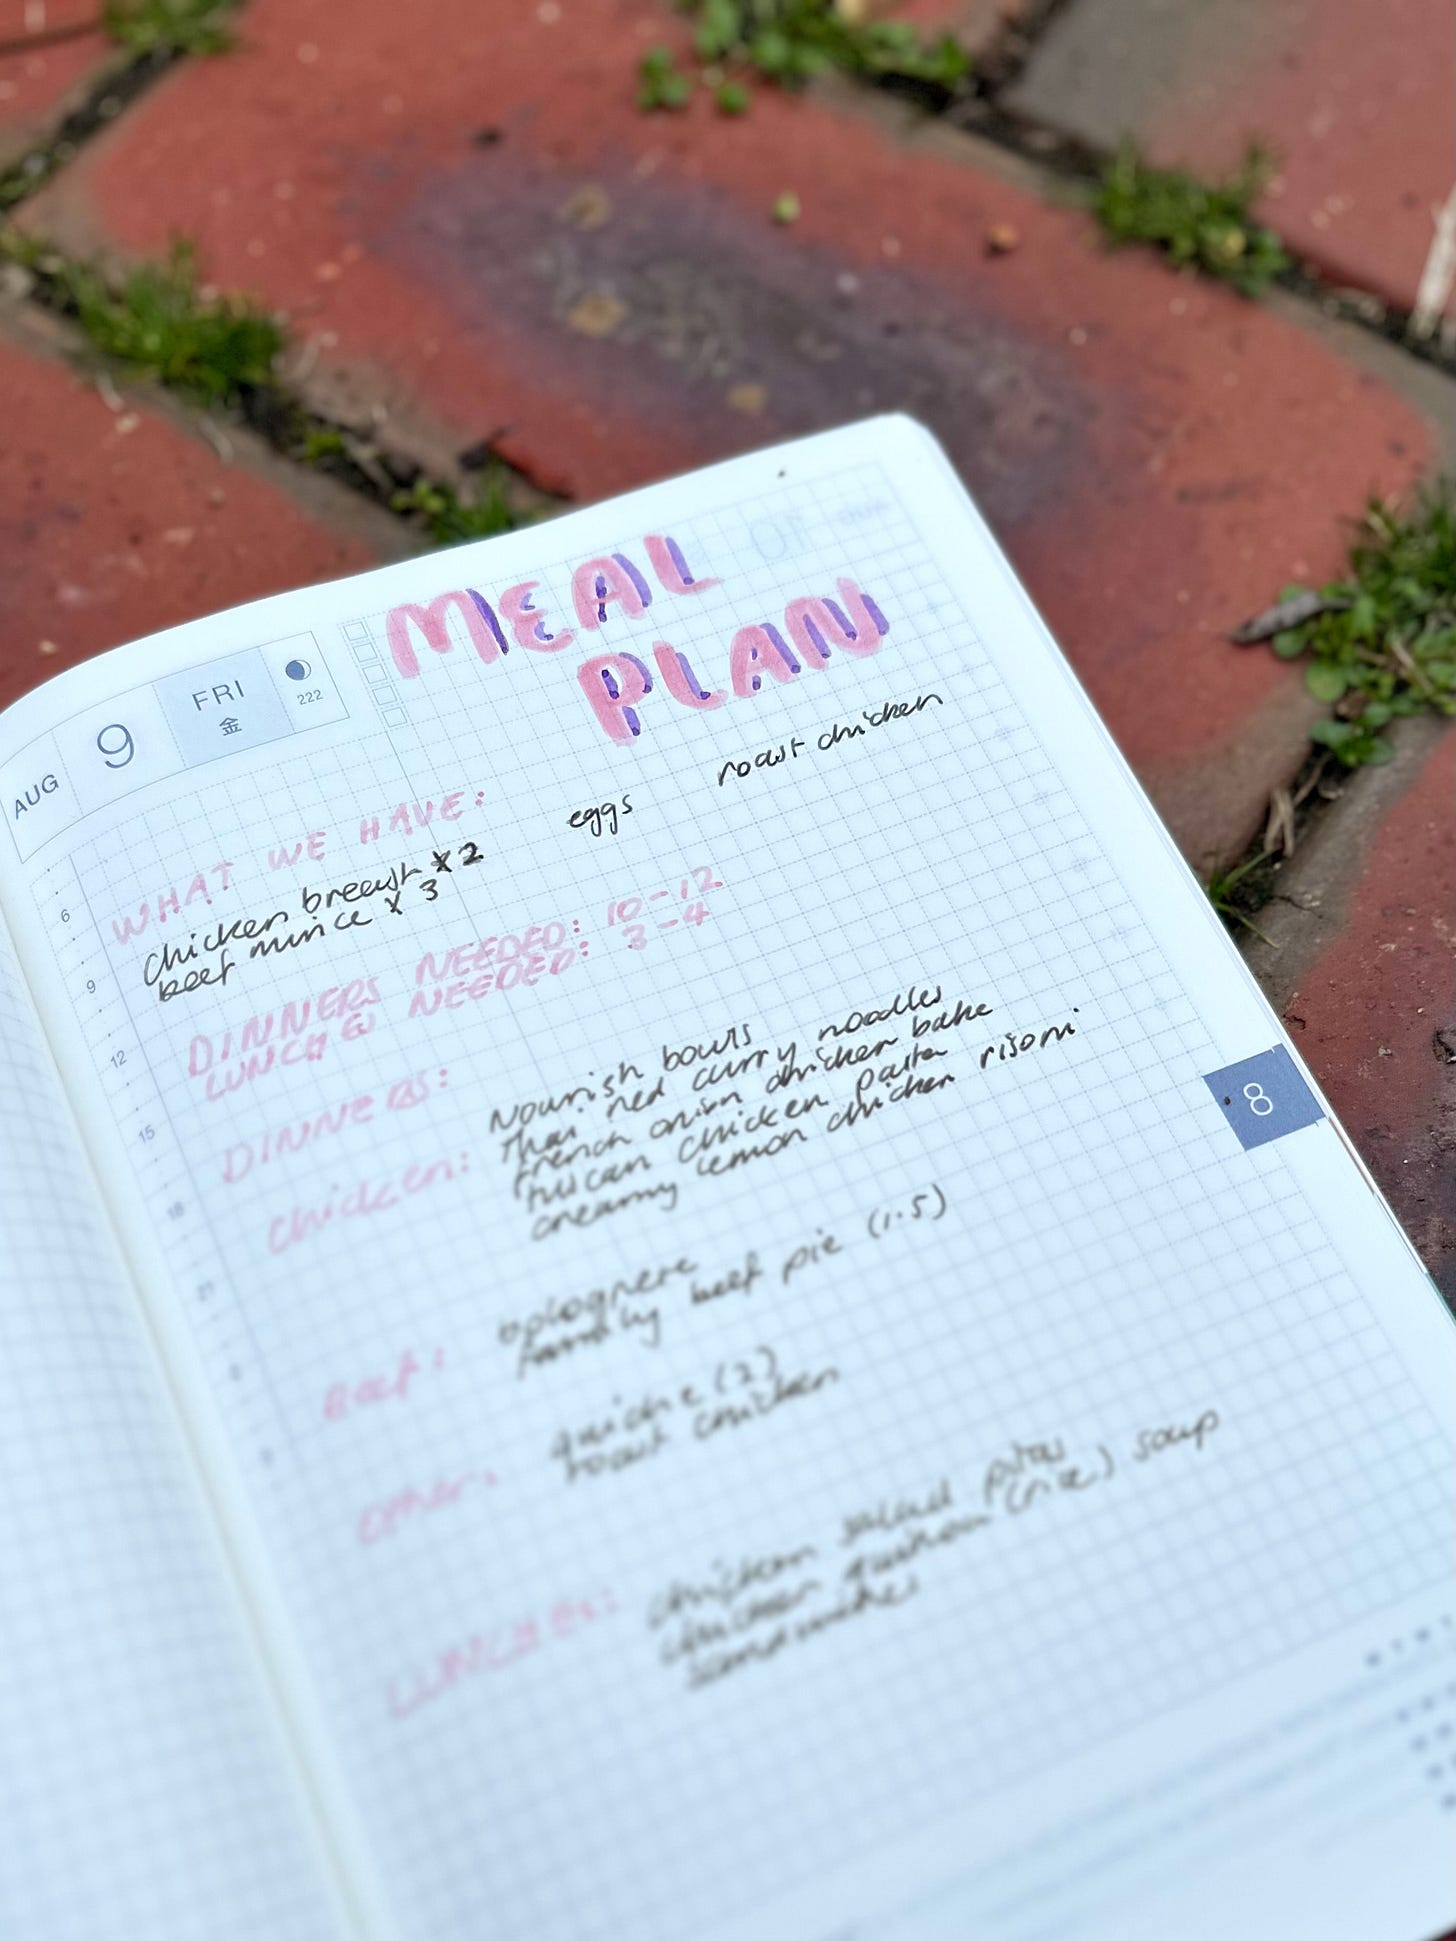 MEAL
PLAN
AUG 9 FRI 金 222
WHAT WE HAVE:
chicken breast x 2 eggs roast chicken
beef mince x 3
DINNERS NEEDED: 10-12
LUNCHES NEEDED: 3-4
DINNERS:
chicken: Nourish bowls
Thai red curry noodles
french onion chicken bake
tuscan chicken pasta
creamy lemon chicken risoni
Beef: bolognese
family beef pie (1.5)
Other: quiche (2)
roast chicken
LUNCHES: chicken salad pitas
chicken (rice) soup
sandwiches
6
9
12
15
18
21
8